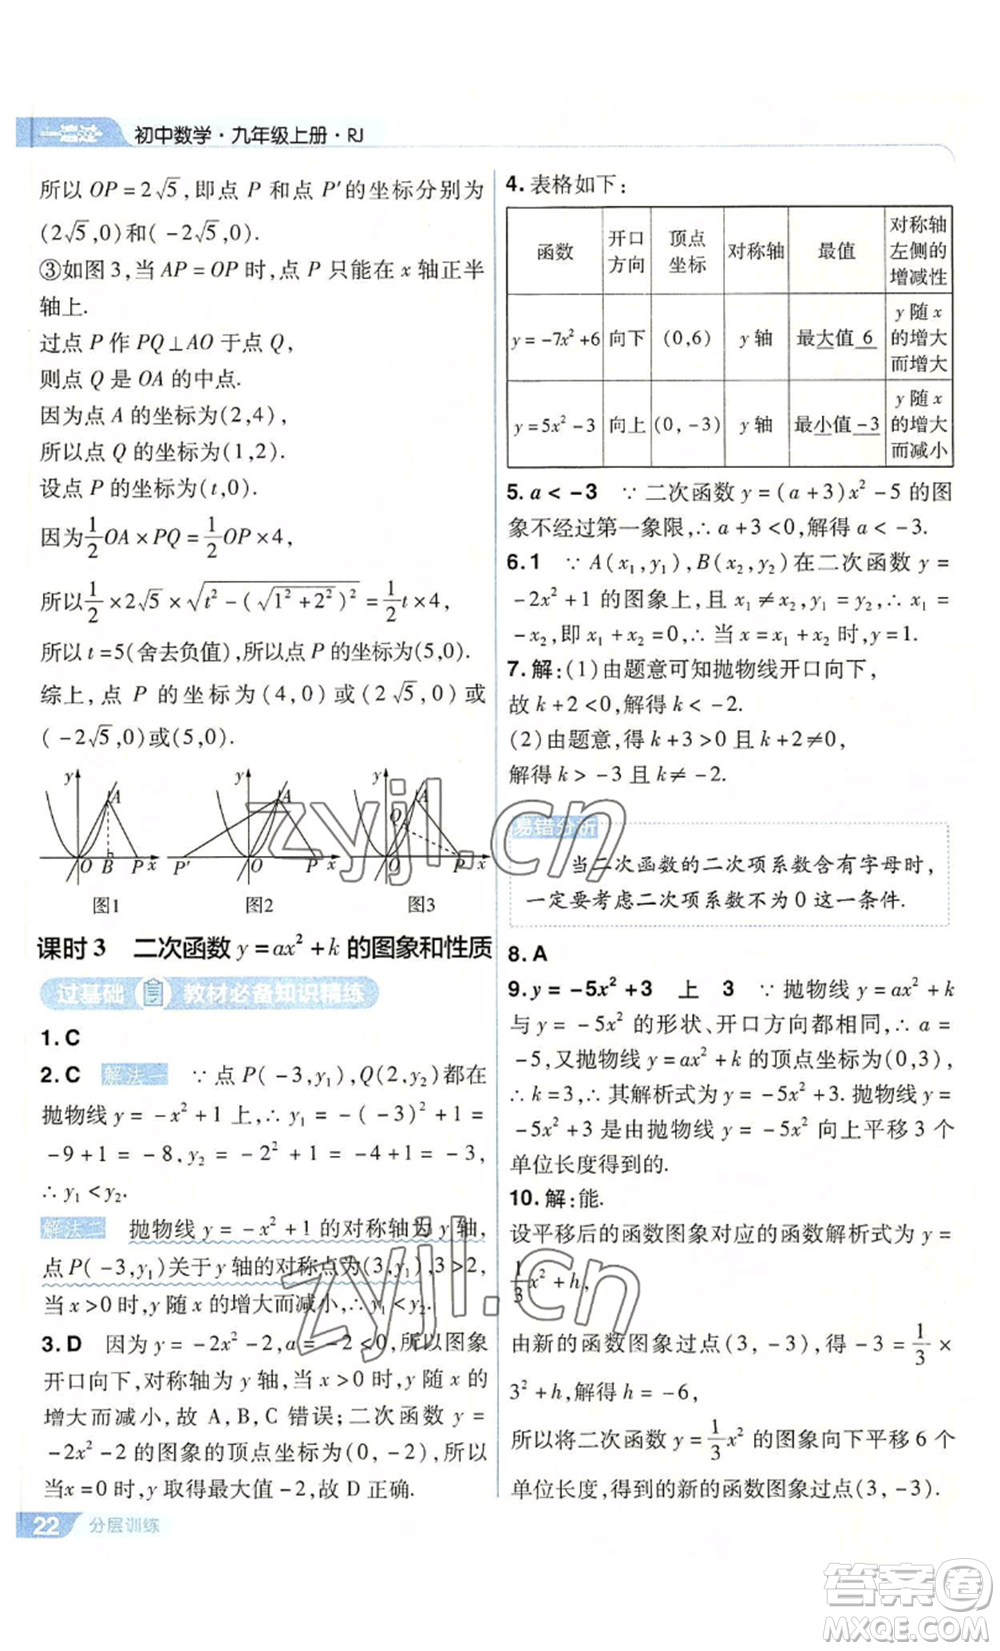 一遍过 初中数学·九年级上册·RJ
所以 OP=2√5,即点 P 和点 P′的坐标分别为
(2√5,0)和(-2√5,0).
③如图3,当 AP=OP 时,点 P 只能在 x 轴正半
轴上.
过点 P 作 PQ⊥AO 于点 Q,
则点 Q 是 OA 的中点.
因为点 A 的坐标为(2,4),
所以点 Q 的坐标为(1,2).
设点 P 的坐标为(t,0).
因为1/2 OA×PQ=1/2 OP×4,
所以1/2×2√5×√(t²-(√(1²+2²))²)=1/2 t×4,
所以 t=5(舍去负值),所以点 P 的坐标为(5,0).
综上,点 P 的坐标为(4,0)或(2√5,0)或
(-2√5,0)或(5,0).
y A O B P x
图1
y A P′ O P x
图2
y A Q O P x
图3
课时3 二次函数 y=ax²+k 的图象和性质
过基础 教材必备知识精练
1.C
2.C 解法一 ∵点 P(-3,y₁),Q(2,y₂)都在
抛物线 y=-x²+1 上,∴y₁=-(-3)²+1=
-9+1=-8,y₂=-2²+1=-4+1=-3,
∴y₁<y₂.
解法二 抛物线 y=-x²+1 的对称轴为 y 轴,
点 P(-3,y₁)关于 y 轴的对称点为(3,y₁),3>2,
当 x>0 时,y 随 x 的增大而减小,∴y₁<y₂.
3.D 因为 y=-2x²-2,a=-2<0,所以图象
开口向下,对称轴为 y 轴,当 x>0 时,y 随 x 的
增大而减小,故 A,B,C 错误;二次函数 y=
-2x²-2 的图象的顶点坐标为(0,-2),所以当
x=0 时,y 取得最大值-2,故 D 正确.
22 分层训练
4.表格如下:
函数 开口方向 顶点坐标 对称轴 最值 对称轴左侧的增减性
y=-7x²+6 向下 (0,6) y 轴 最大值 6 y 随 x 的增大而增大
y=5x²-3 向上 (0,-3) y 轴 最小值 -3 y 随 x 的增大而减小
5.a<-3 ∵二次函数 y=(a+3)x²-5 的图
象不经过第一象限,∴a+3<0,解得 a<-3.
6.1 ∵A(x₁,y₁),B(x₂,y₂)在二次函数 y=
-2x²+1 的图象上,且 x₁≠x₂,y₁=y₂,∴x₁=
-x₂,即 x₁+x₂=0,∴当 x=x₁+x₂ 时,y=1.
7.解:(1)由题意可知抛物线开口向下,
故 k+2<0,解得 k<-2.
(2)由题意,得 k+3>0 且 k+2≠0,
解得 k>-3 且 k≠-2.
易错分析
当二次函数的二次项系数含有字母时,
一定要考虑二次项系数不为0这一条件.
8.A
9.y=-5x²+3 上 3 ∵抛物线 y=ax²+k
与 y=-5x² 的形状、开口方向都相同,∴a=
-5,又抛物线 y=ax²+k 的顶点坐标为(0,3),
∴k=3,∴其解析式为 y=-5x²+3.抛物线 y=
-5x²+3 是由抛物线 y=-5x² 向上平移3个
单位长度得到的.
10.解:能.
设平移后的函数图象对应的函数解析式为 y=
1/3 x²+h,
由新的函数图象过点(3,-3),得-3=1/3×
3²+h,解得 h=-6,
所以将二次函数 y=1/3 x² 的图象向下平移6个
单位长度,得到的新的函数图象过点(3,-3).
zyjl.cn
zyjl.cn
答案卷
MXQE.COM